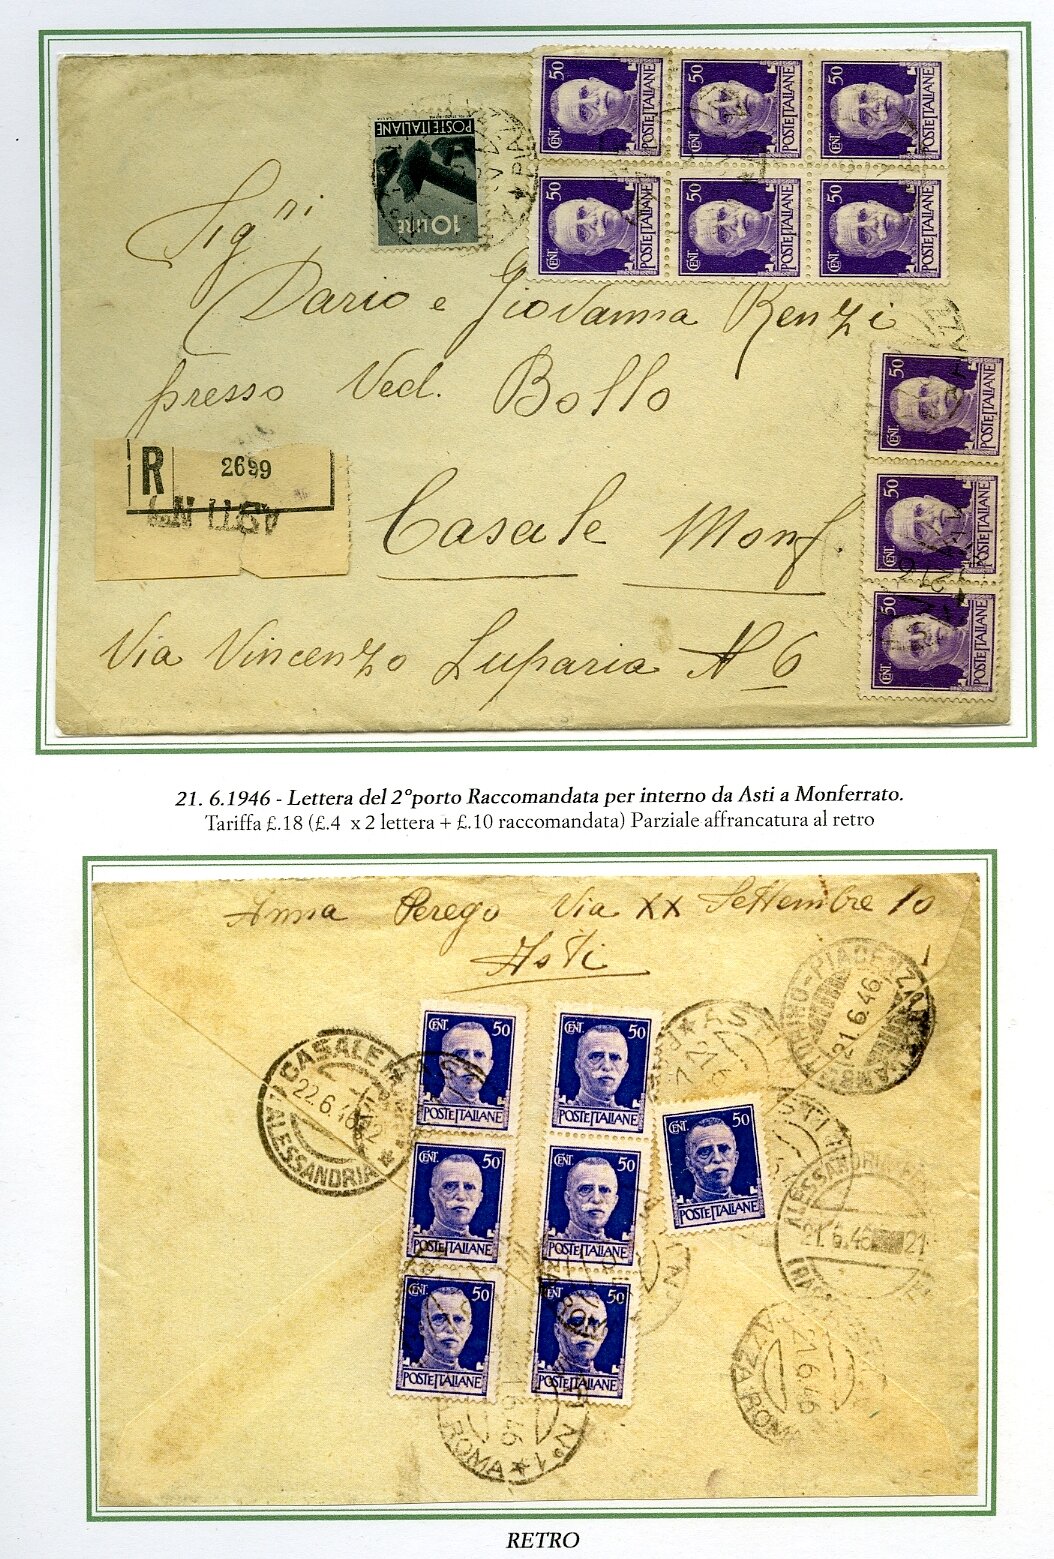 POSTE ITALIANE
10 LIRE
CENT. 50 POSTE ITALIANE
CENT. 50 POSTE ITALIANE
CENT. 50 POSTE ITALIANE
CENT. 50 POSTE ITALIANE
CENT. 50 POSTE ITALIANE
CENT. 50 POSTE ITALIANE
Sig.ri
Dario e Giovanna Renzi
presso Ved. Bollo
CENT. 50 POSTE ITALIANE
CENT. 50 POSTE ITALIANE
CENT. 50 POSTE ITALIANE
R 2699
ASTI N.1
Casale Monf.
Via Vincenzo Luparia N 6
21. 6.1946 - Lettera del 2°porto Raccomandata per interno da Asti a Monferrato.
Tariffa £.18 (£.4 x 2 lettera + £.10 raccomandata) Parziale affrancatura al retro
Anna Perego Via XX Settembre 10
Asti
TORINO-PIACENZA
21.6.46
CASALE M
22.6.46
ALESSANDRIA
CENT. 50 POSTE ITALIANE
CENT. 50 POSTE ITALIANE
CENT. 50 POSTE ITALIANE
CENT. 50 POSTE ITALIANE
CENT. 50 POSTE ITALIANE
CENT. 50 POSTE ITALIANE
CENT. 50 POSTE ITALIANE
ALESSANDRIA
21.6.46 21
21.6.46
ROMA
N° 1
RETRO